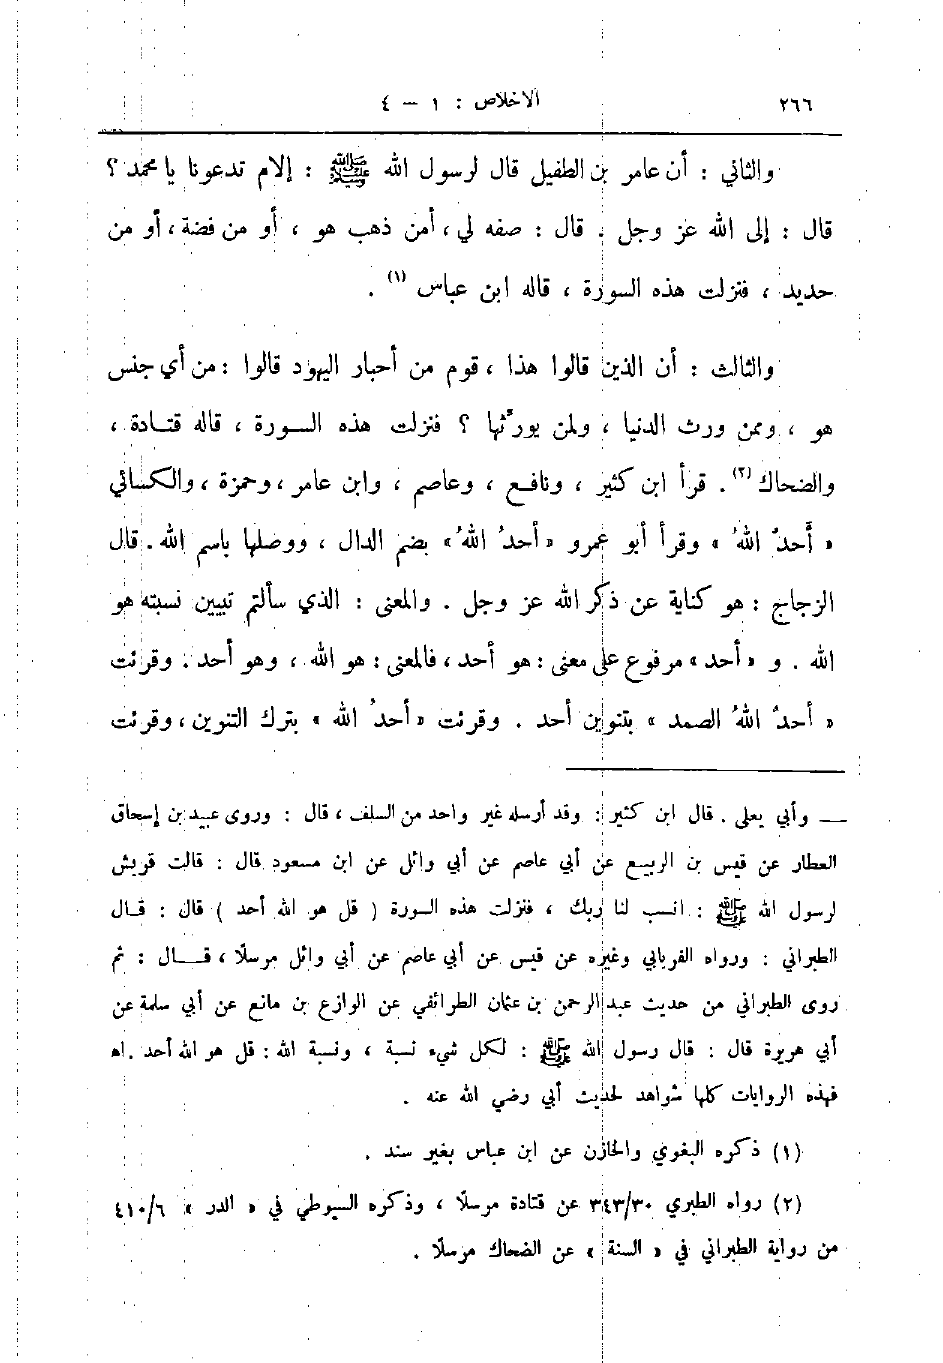 ٢٦٦ الاخلاص : ١ - ٤
والثاني : أن عامر بن الطفيل قال لرسول الله ﷺ : إلام تدعونا يا محمد ؟
قال : إلى الله عز وجل . قال : صفه لي ، أمن ذهب هو ، أو من فضة ، أو من
حديد ، فنزلت هذه السورة ، قاله ابن عباس (١) .
والثالث : أن الذين قالوا هذا ، قوم من أحبار اليهود قالوا : من أي جنس
هو ، وممن ورث الدنيا ، ولمن يورثها ؟ فنزلت هذه السورة ، قاله قتادة ،
والضحاك (٢) . قرأ ابن كثير ، ونافع ، وعاصم ، وابن عامر ، وحمزة ، والكسائي
« أحدٌ اللهُ » وقرأ أبو عمرو « أحدُ اللهُ » بضم الدال ، ووصلها باسم الله . قال
الزجاج : هو كناية عن ذكر الله عز وجل . والمعنى : الذي سألتم تبيين نسبته هو
الله . و « أحد » مرفوع على معنى : هو أحد ، فالمعنى : هو الله ، وهو أحد . وقرئت
« أحدٌ اللهُ الصمد » بتنوين أحد . وقرئت « أحدُ الله » بترك التنوين ، وقرئت
— وأبي يعلى . قال ابن كثير : وقد أرسله غير واحد من السلف ، قال : وروى عبيد بن إسحاق
العطار عن قيس بن الربيع عن أبي عاصم عن أبي وائل عن ابن مسعود قال : قالت قريش
لرسول الله ﷺ : انسب لنا ربك ، فنزلت هذه السورة ( قل هو الله أحد ) قال : قال
الطبراني : ورواه الفريابي وغيره عن قيس عن أبي عاصم عن أبي وائل مرسلًا ، قال : ثم
روى الطبراني من حديث عبد الرحمن بن عثمان الطرائفي عن الوازع بن مانع عن أبي سلمة عن
أبي هريرة قال : قال رسول الله ﷺ : لكل شيء نسبة ، ونسبة الله : قل هو الله أحد . اه
فهذه الروايات كلها شواهد لحديث أبي رضي الله عنه .
(١) ذكره البغوي والخازن عن ابن عباس بغير سند .
(٢) رواه الطبري ٣٤٣/٣٠ عن قتادة مرسلًا ، وذكره السيوطي في « الدر » ٤١٠/٦
من رواية الطبراني في « السنة » عن الضحاك مرسلًا .